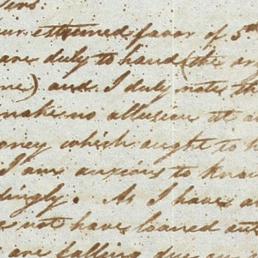 Sirs.
our esteemed favor of 5th
are duly to hand (the or
ne) and I duly note th
make no allusion it a
oney which ought to h
I am anxious to know
dingly. As I have a
not have loaned out
are falling due